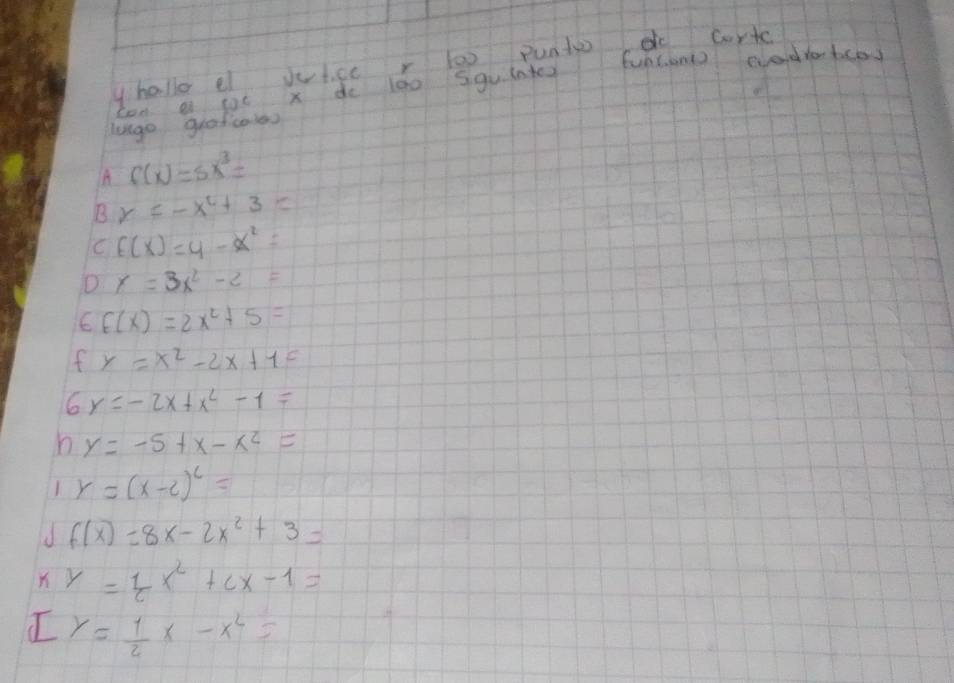 y halla el vertice y los puntos de corte
con el eje x de las siguintes funciones cuadraticas
luego graficalas
A f(x) = 5x³ =
B y = -x² + 3 =
C f(x) = 4 - x² =
D y = 3x² - 2 =
E f(x) = 2x² + 5 =
f y = x² - 2x + 1 =
G y = -2x + x² - 1 =
h y = -5 + x - x² =
I y = (x-2)² =
J f(x) = 8x - 2x² + 3 =
K y = 1/2 x² + 2x - 1 =
I y = 1/2 x - x² =